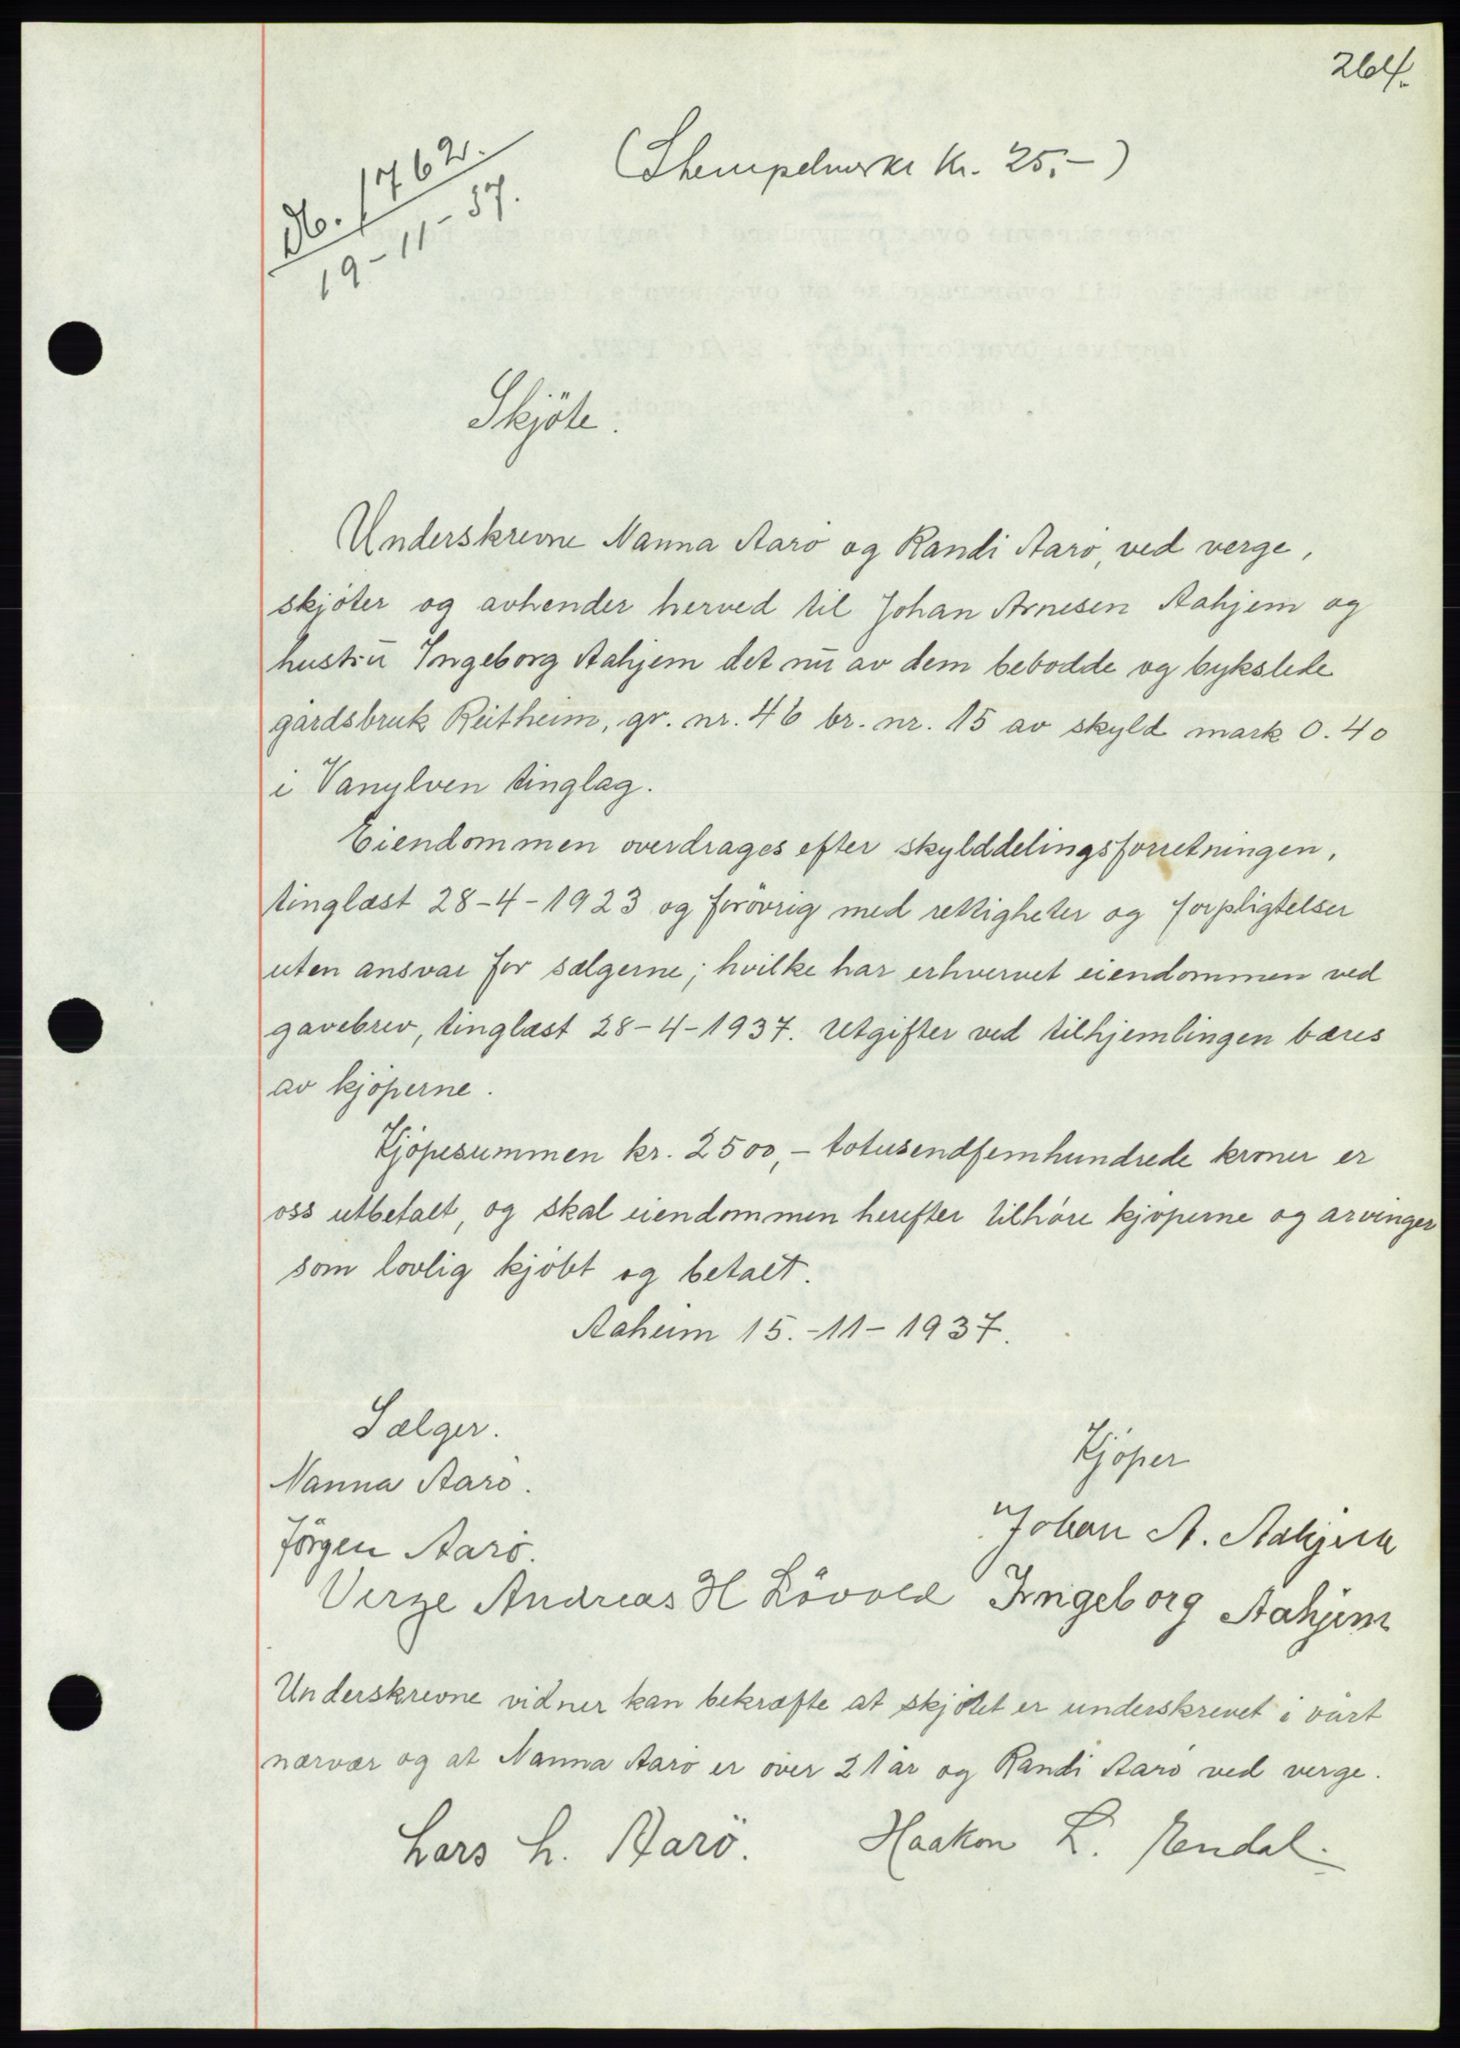 264.
(Stempelmerke kr. 25,-)
Nr. 1762.
19-11-37.
Skjöte.
Underskrevne Nanna Aarö og Randi Aarö, ved verge,
skjöter og avhender herved til Johan Arnesen Aahjem og
hustru Ingeborg Aahjem det nu av dem bebodde og bykslede
gårdsbruk Reitheim, gr. nr. 46 br. nr. 15 av skyld mark 0.40
i Vanylven tinglag.
Eiendommen overdrages efter skylddelingsforretningen,
tinglæst 28-4-1923 og forövrig med rettigheter og forpligtelser
uten ansvar for sælgerne; hvilke har erhvervet eiendommen ved
gavebrev, tinglæst 28-4-1937. Utgifter ved tilhjemlingen bæres
av kjöperne.
Kjöpesummen kr. 2500,- totusendfemhundrede kroner er
oss utbetalt, og skal eiendommen herefter tilhöre kjöperne og arvinger
som lovlig kjöbt og betalt.
Aaheim 15.-11-1937.
Sælger.
Kjöper
Nanna Aarö.
Johan A. Aahjem
Jörgen Aarö.
Verge Andreas H Lövold
Ingeborg Aahjem
Underskrevne vidner kan bekræfte at skjötet er underskrevet i vårt
nærvær og at Nanna Aarö er över 21 år og Randi Aarö ved verge.
Lars L. Aarö.
Haakon L. Eendal.